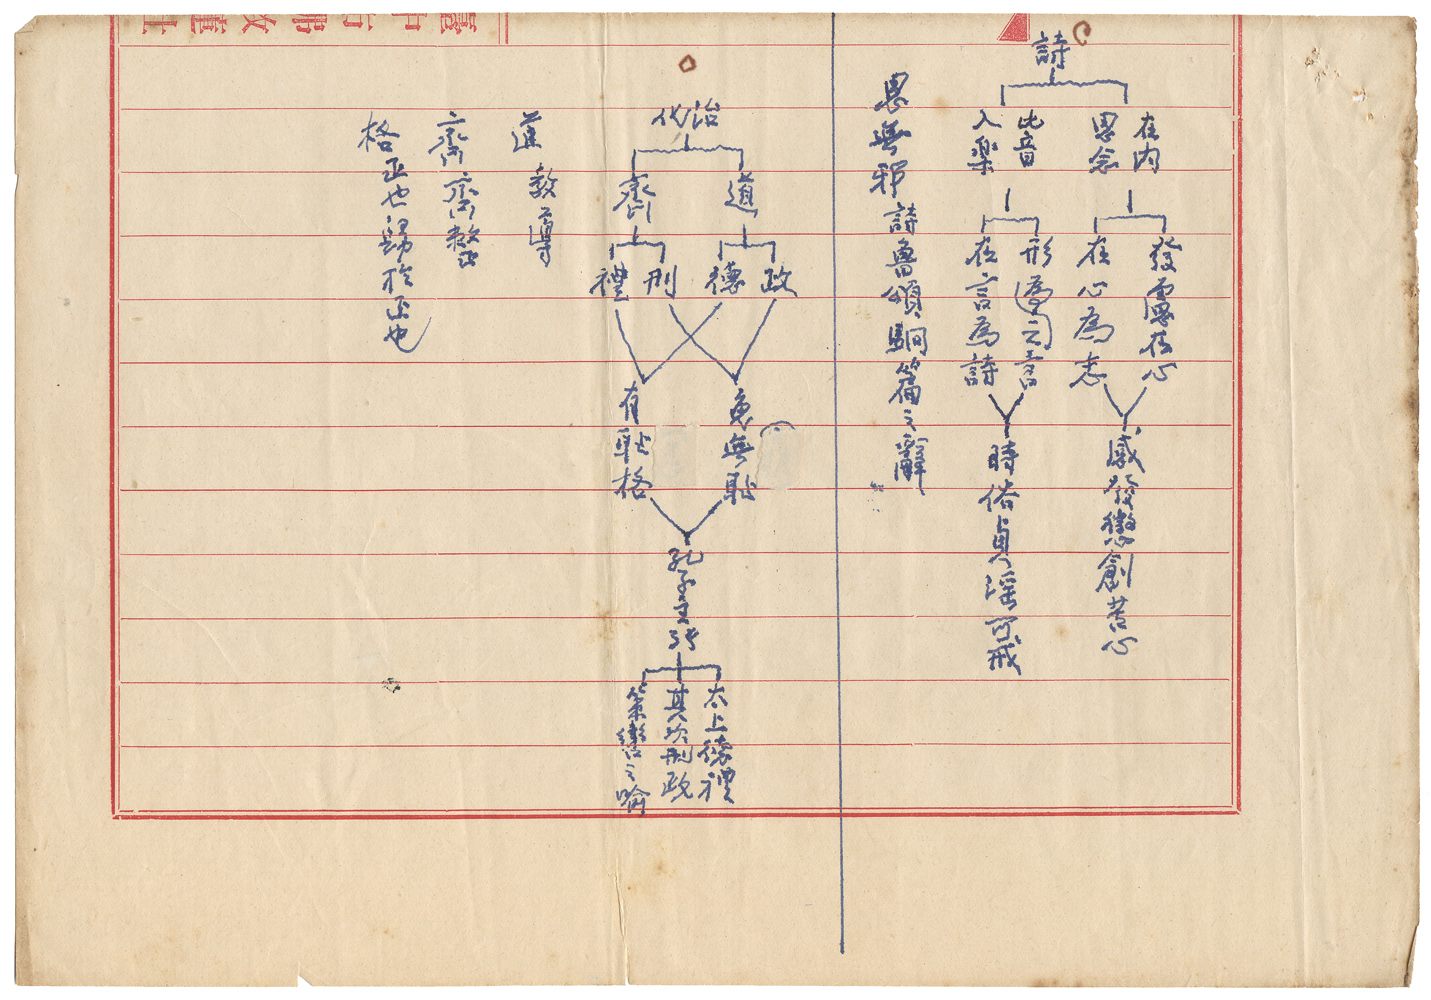 詩
在內
思念
比音
入樂
發慮在心
在心為志
形為之言
在言為詩
感發懲創苦心
時俗貞淫可戒
思無邪 詩魯頌駉篇之辭
治化
道
齊
政
德
刑
禮
免無恥
有恥格
孔子主張
太上德禮
其次刑政
策轡之喻
道 教導
齊 齊整
格 正也歸於正也